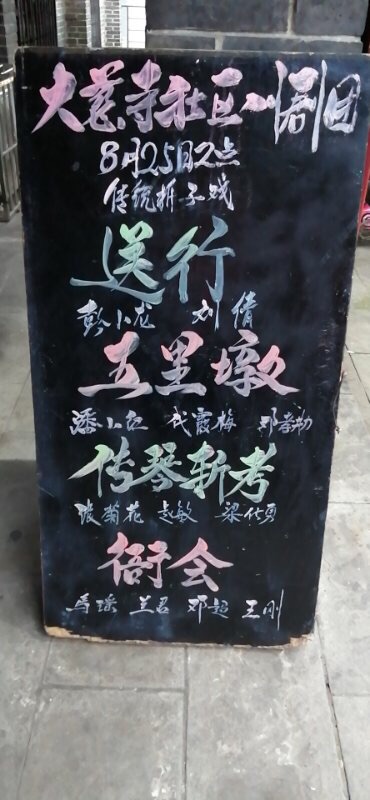 大慈寺社区川剧团
8月25日2点
传统折子戏
送行
彭小龙 刘倩
五里墩
潘小 霞梅 邓孝勤
传琴斩考
菊花 赵敏 梁仕勇
衙会
马瑞 兰君 邓超 王刚